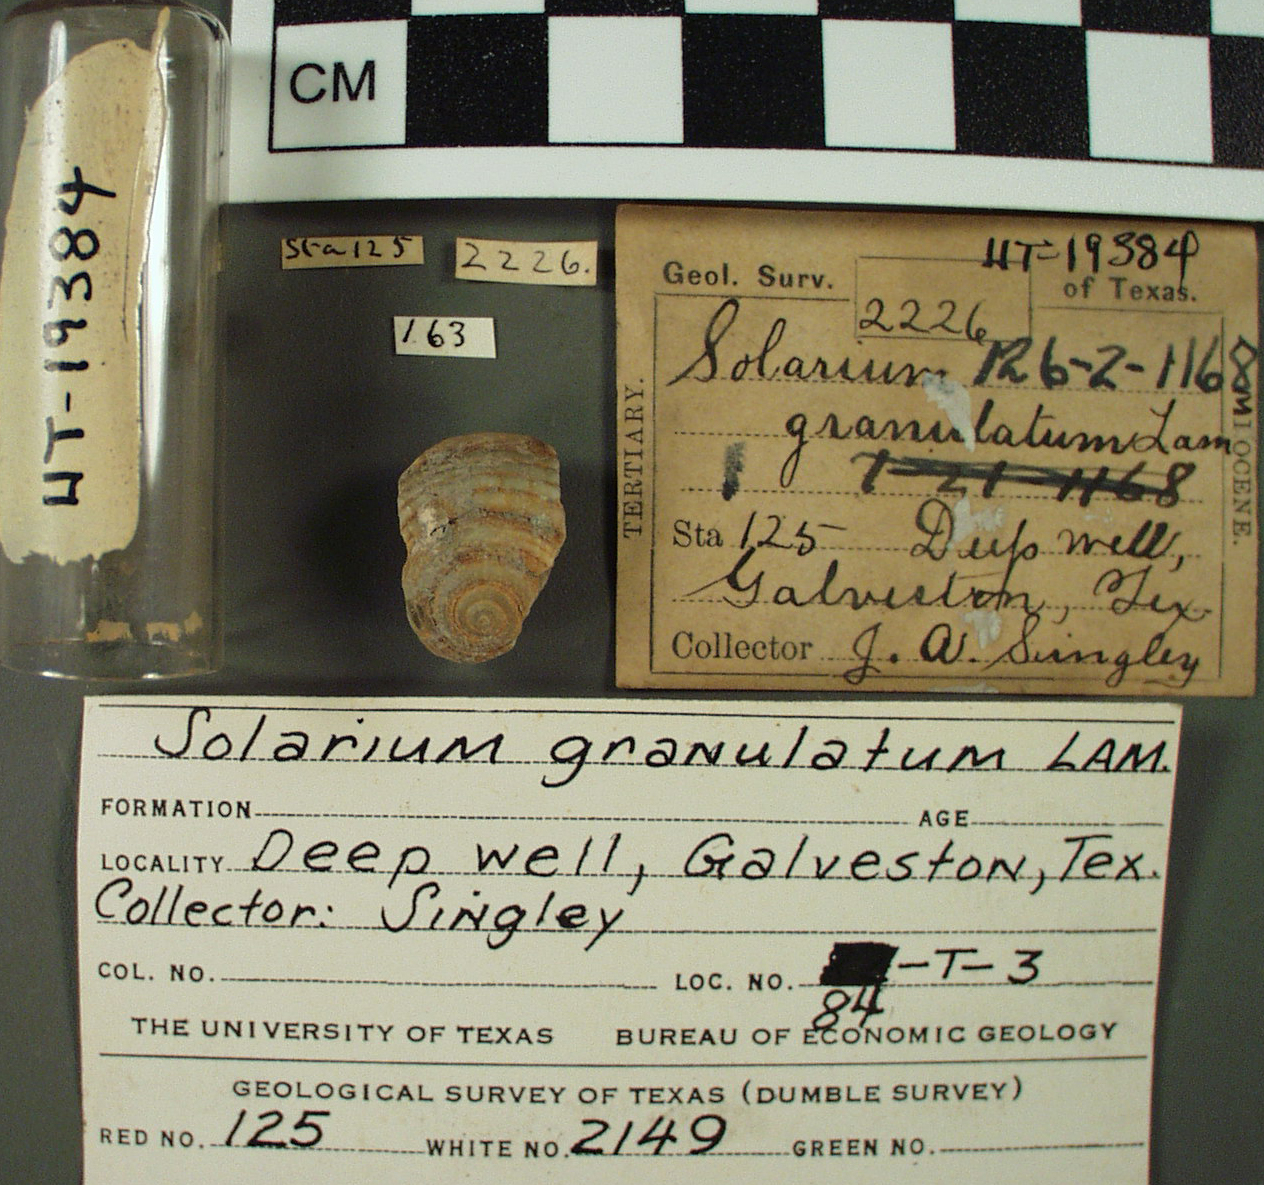 CM
WT-19384
Sta 125
2226.
163
WT-19384
Geol. Surv. of Texas.
2226
Solarium R6-2-1168
granulatum Lam
1 1-21-1168
TERTIARY.
MIOCENE.
Sta 125 Deep well,
Galveston, Tex.
Collector J. A. Singley
Solarium granulatum LAM.
FORMATION AGE
LOCALITY Deep well, Galveston, Tex.
Collector: Singley
COL. NO. LOC. NO. -T-3
84
THE UNIVERSITY OF TEXAS BUREAU OF ECONOMIC GEOLOGY
GEOLOGICAL SURVEY OF TEXAS (DUMBLE SURVEY)
RED NO. 125 WHITE NO. 2149 GREEN NO.